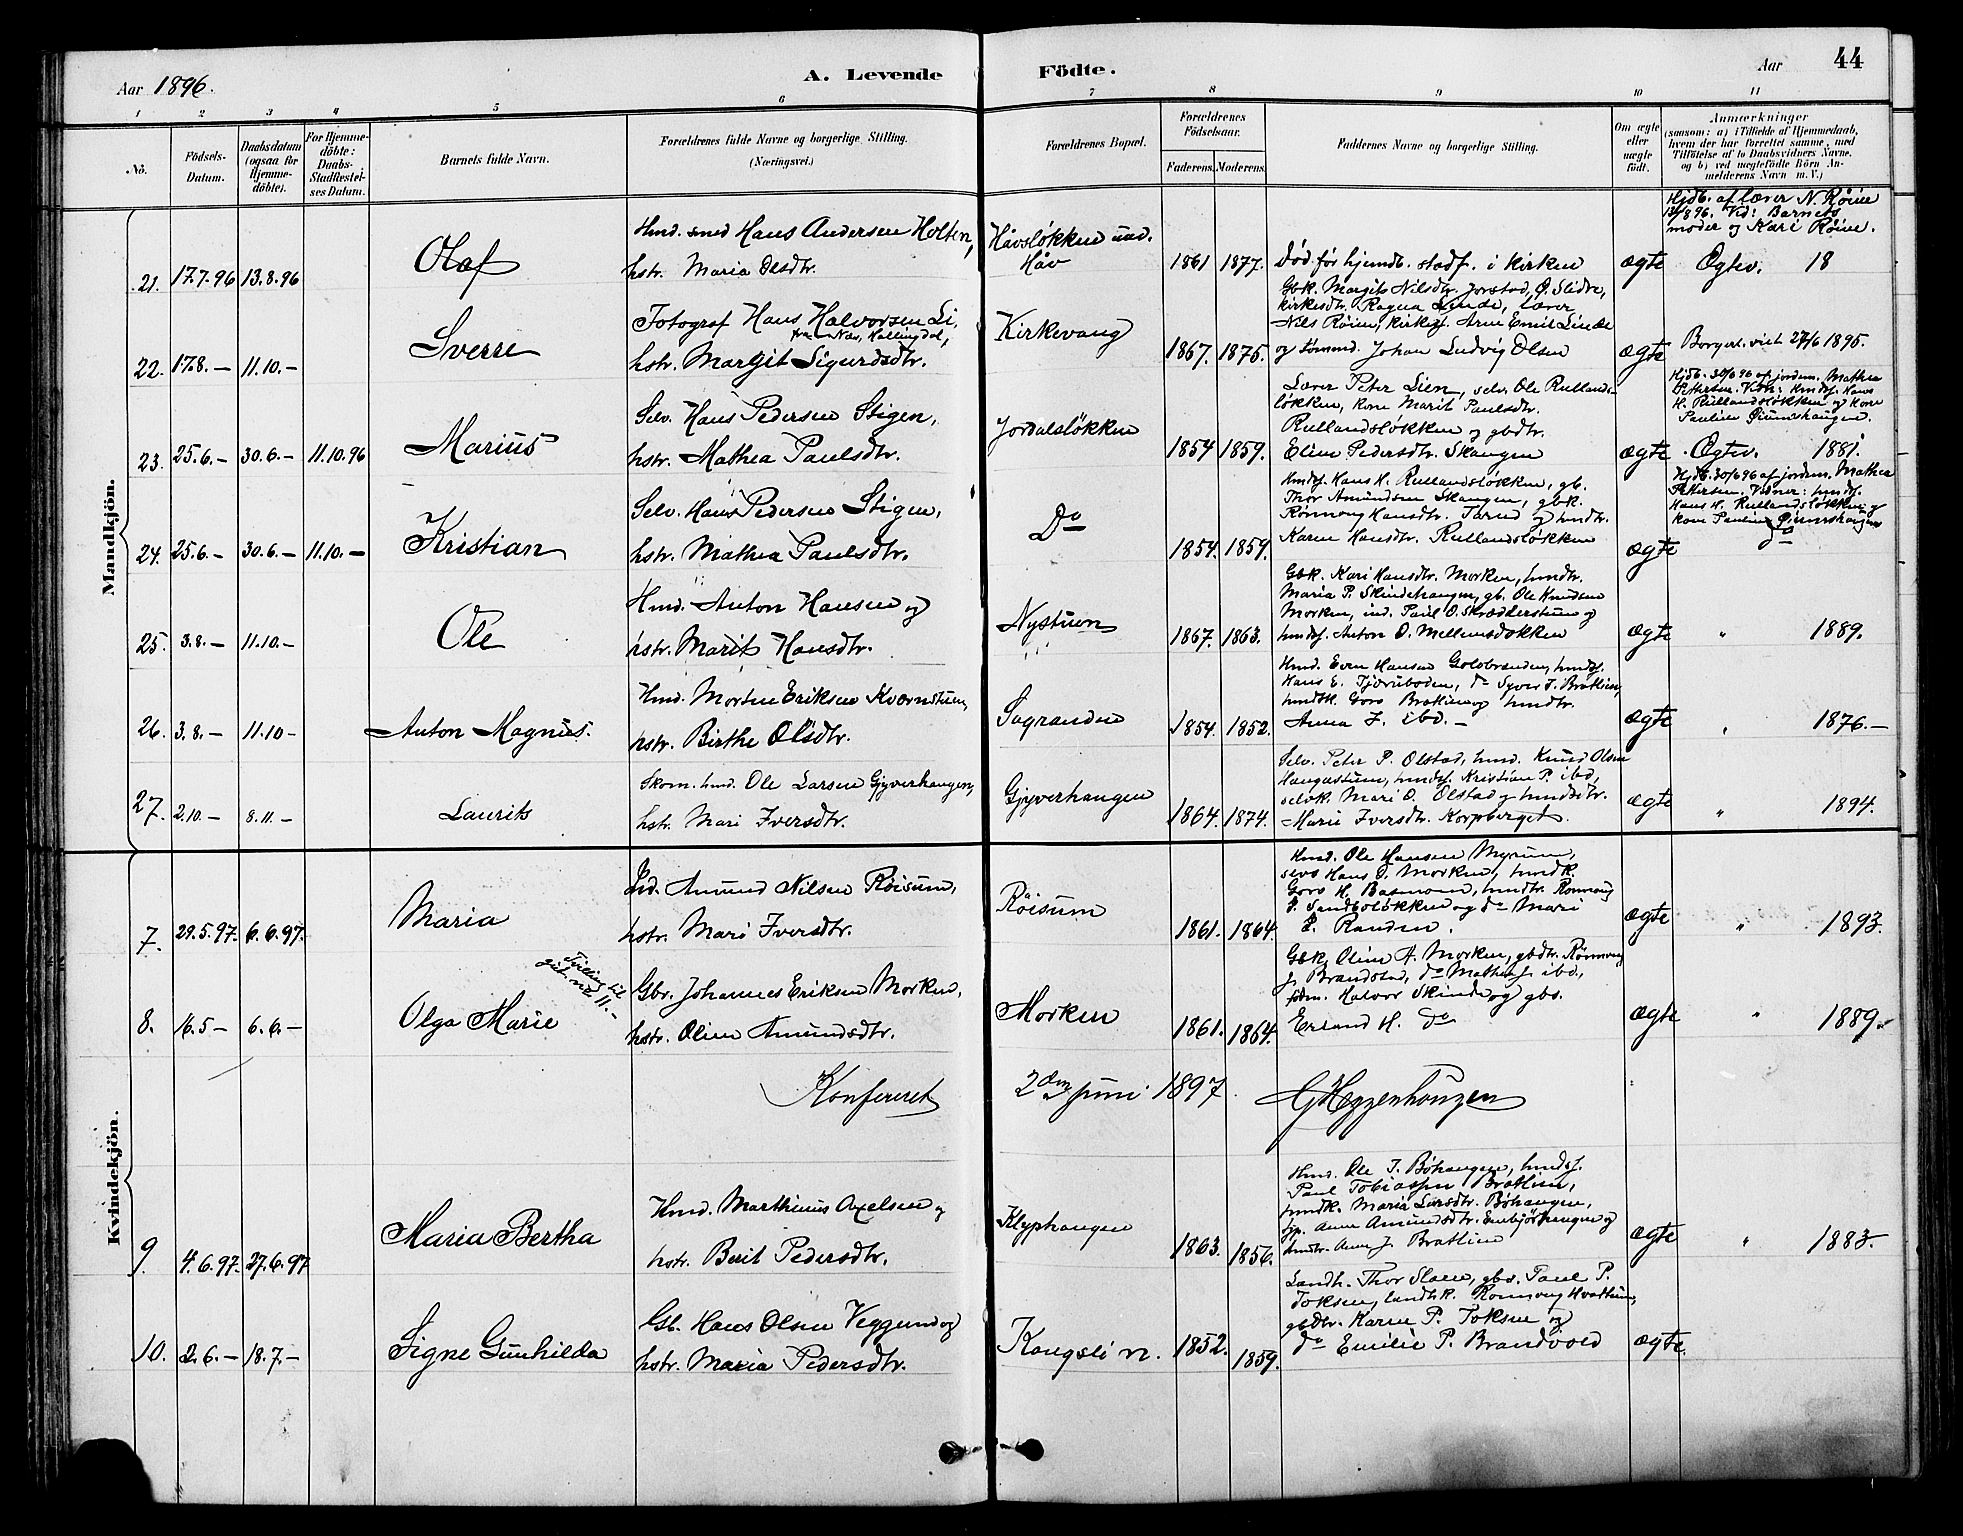 Aar 1896.
A. Levende Födte.
Aar
44
1 2 3 4 5 6 7 8 9 10 11
No.
Födsels-
Datum.
Daabsdatum
(ogsaa för
Hjemme-
döbte).
For Hjemme-
döbte:
Daabs-
Stadfæstel-
ses Datum.
Barnets fulde Navn.
Forældrenes fulde Navne og borgerlige Stilling.
(Næringsvei.)
Forældrenes Bopæl.
Forældrenes
Födselsaar.
Faderens. Moderens.
Faddernes Navne og borgerlige Stilling.
Om ægte
eller
uægte
födt.
Anmærkninger
(saasom: a) i Tilfælde af Hjemmedaab,
hvem der har forrettet samme, med
Tilföielse af to Daabsvidners Navne,
og b) ved uægtefödte Börn An-
melderens Navn m. V.)
Mandkjön.
21. 17.7.96 13.8.96
Olaf
Hmd. smed Hans Andersen Holten,
hstr. Maria Olsdtr.
Håvsløkken und.
Håv
1861 1877.
Død før hjemdb. stadf. i kirken
ægte
Hjdb. af lærer N. Røine
13/8 96. Vid: Barnets
moder og Kari Røine.
Ogtev. 18
22. 17.8.— 11.10.—
Sverre
Fotograf Hans Halvorsen Li,
fra Næs, Hallingdal,
hstr. Margit Sigurdsdtr.
Kirkevang
1867. 1875.
Gbk. Margit Nilsdtr. Jorstad, Ø. Slidre,
kirkesdtr. Ragna Linde, lærer
Nils Røien, kirkes. Arne Emil Linde
og tømmd. Johan Ludvig Olsen
ægte
Borgerl. viet 27/6 1895.
23. 25.6.— 30.6.— 11.10.96
Marius
Selv. Hans Pedersen Stigen,
hstr. Mathea Paulsdtr.
Jordalsløkken
1854 1859.
Lærer Peter Lien, selv. Ole Rullands-
løkken, kone Marit Paulsdtr.
Rullandsløkken og gbdtr.
Eline Pedersdtr. Skaugen
ægte
Hjdb. 30/6 96 af jordem. Mathea
Pettersen. Vidn: hmdsf. Hans
H. Rullandsløkken og kone
Pauline
Ogtev. 1881.
24. 25.6.— 30.6.— 11.10.—
Kristian
Selv. Hans Pedersen Stigen,
hstr. Mathea Paulsdtr.
Do
1854. 1859.
Hmdsf. Hans H. Rullandsløkken, gb.
Thor Amundsen Skaugen, gbk.
Rönnoug Hansdtr. Tarud og hmdtr.
Karen Hansdtr. Rullandsløkken
ægte
Hjdb. 30/6 96 af jordem. Mathea
Pettersen. Vidner: hmdsf.
Hans H. Rullandsløkken og
kone Pauline
Do
25. 3.8.— 11.10.—
Ole
Hmd. Anton Hansen og
hstr. Marit Hansdtr.
Nystuen
1867. 1863.
Gbk. Kari Hansdtr. Morken, hmdtr.
Maria P. Skindehaugen, gb. Ole Knudsen
Morken, ind. Paul O. Skrædderstuen og
hmdsf. Anton O. Mellemsdokken
ægte
" 1889.
26. 3.8.— 11.10—
Anton Magnus.
Hmd. Morten Eriksen Kværnstuen,
hstr. Birthe Olsdtr.
Sagranden
1854. 1852.
Hmd. Even Hansen Golobranden, hmdsf.
Hans E. Tjæreboden, do Syver J. Bratlien,
hmdtk. Goro Bratlien og hmdtr.
Anna J. ibd.—
ægte
" 1876.—
27. 2.10.— 8.11.—
Laurits
Skom. hmd. Ole Larsen Gjyverhaugen,
hstr. Mari Iversdtr.
Gjyverhaugen
1864. 1874.
Selv. Peter P. Olstad, hmd. Knud Olsen
Haugastuen, hmdsf. Kristian P. ibd,
selvk. Mari O. Olstad og hmdsdtr.
Marie Iversdtr. Korpberget.
ægte
" 1894.
Kvindekjön.
7. 29.5.97. 6.6.97.
Maria
Ind. Amund Nilsen Røisum,
hstr. Mari Iversdtr.
Røisum
1861. 1864.
Hmd. Ole Hansen Myrum,
selvs Hans J. Morken, hmdk.
Goro H. Basmoen, hmdtr. Rønnoug
P. Sandboløkken og do Mari
E. Randen.
ægte
" 1893.
8. 16.5— 6.6.—
Olga Marie
Tvilling til
gut no 11.—
Gbr. Johannes Eriksen Morken,
hstr. Oline Amundsdtr.
Morken
1861. 1864.
Gbk. Oline A. Morken, gbdtr. Rønnoug
J. Brandstad, do Mathea J. ibd,
fdm. Halvor Skinde og gbs.
Erland H. do
ægte
" 1889.
Konfereret 2den juni 1897 G Heggenhougen
9. 4.6.97. 27.6.97
Maria Bertha
Hmd. Marthinus Axelsen og
hstr. Berit Pedersdtr.
Klyphaugen
1863. 1856.
Hmd. Ole J. Bøhaugen, hmdsf.
Paul Tobiassen Bratlien,
hmdk. Maria Larsdtr. Bøhaugen,
pp. Anne Amundsdtr. Embjørhaugen og
hmdtr. Anne J. Bratlien
ægte
" 1883.
10. 2.6.— 18.7.—
Signe Gunhilda
Gb. Hans Olsen Veggum og
hstr. Maria Pedersdtr.
Kongsli n.
1852. 1859.
Landh. Thor Slaen, gbs. Paul P.
Toksen, landhk. Rønnoug Hvattum,
gbdtr. Karen P. Toksen og
do Emilie P. Brandvold
ægte.